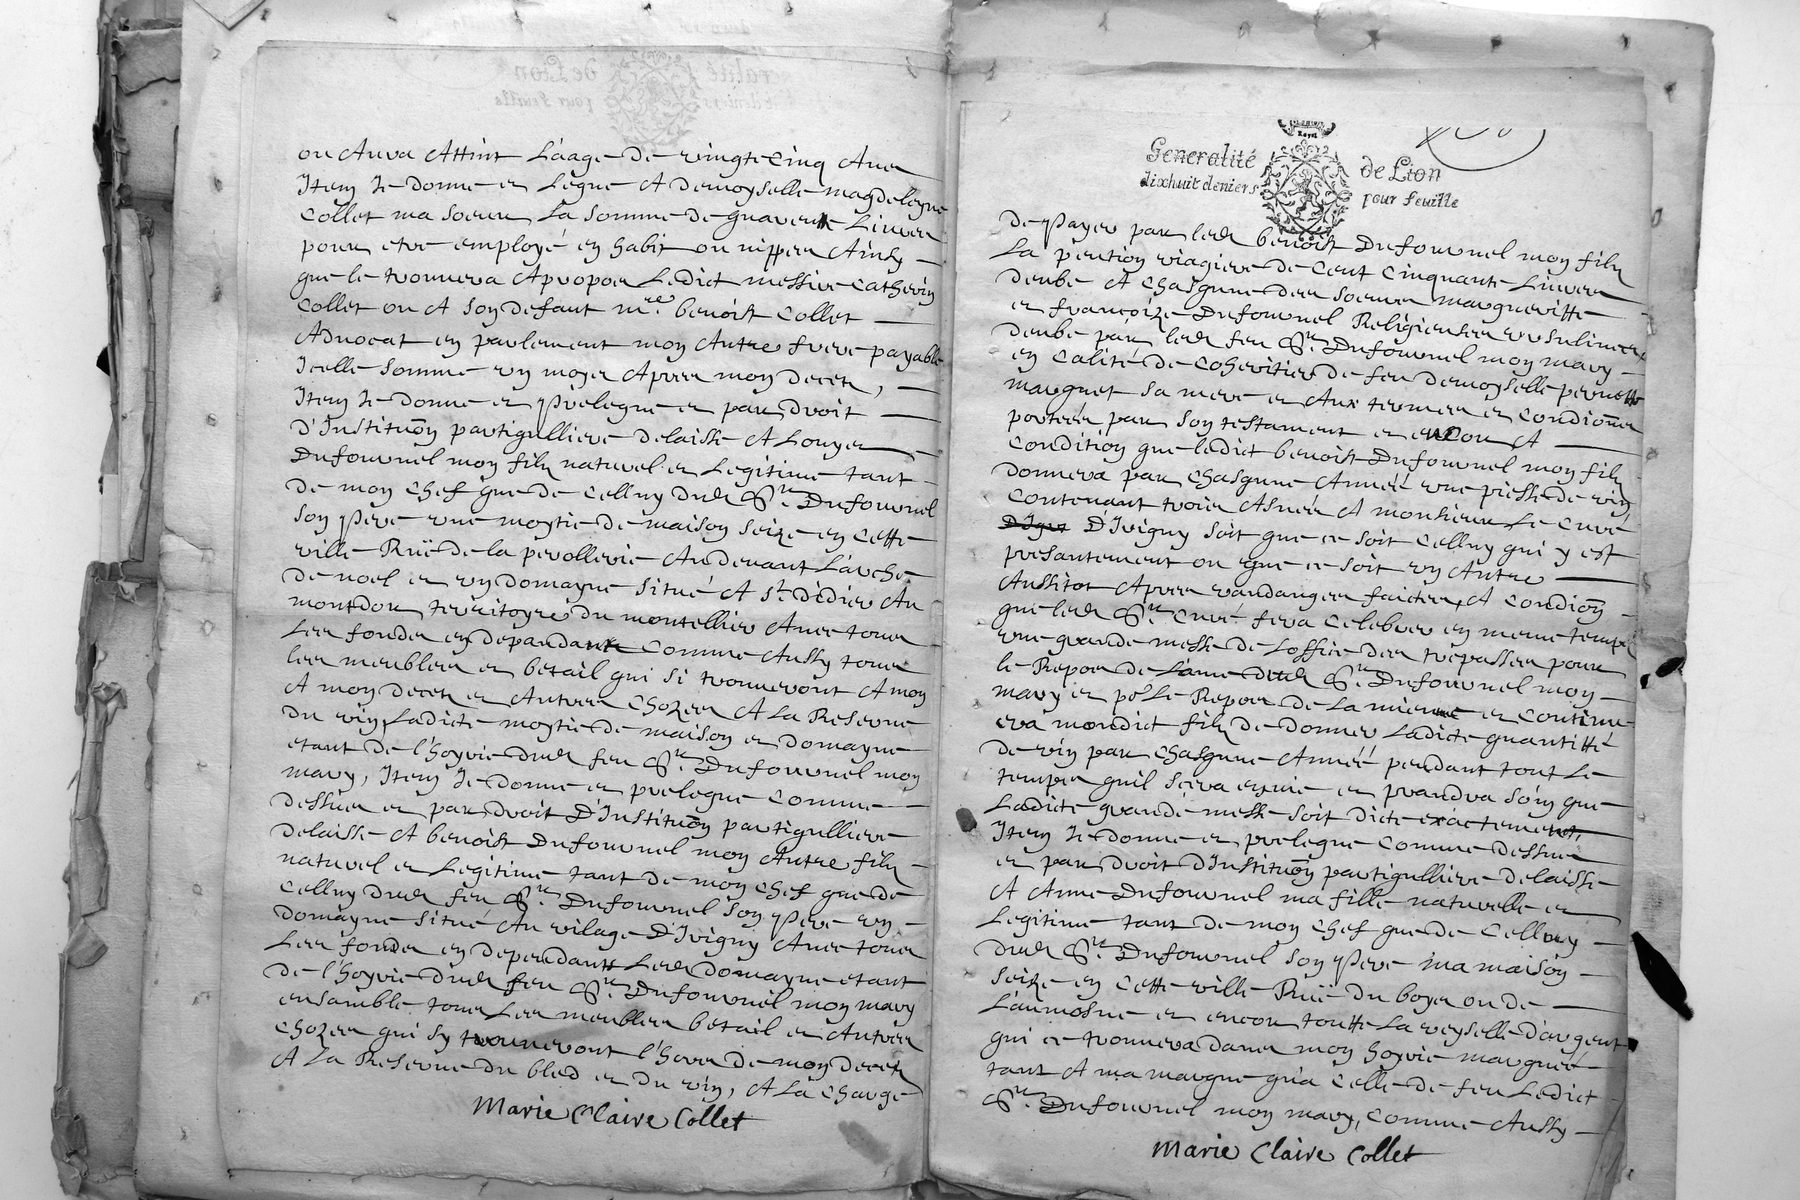 ou Aura Attint L'aage de vingt cinq Ans
Item Je donne et Legue A demoyselle magdeleyne
Collet ma soeur La somme de quarente Livres
pour etre employé en habit ou nippes Ainsy
que le trouvera Apropos Ledict messire Catherin
Collet ou A son defaut mre. benoist Collet
Advocat en parlement mon Autre frere payable
Icelle somme un moys Apres mon deces,
Item Je donne et Prelegue et par droit
d'Institution partigulliere delaisse A Louys
Dufournel mon fils naturel et Legitime tant
de mon Chef que de Celluy dudt Sr. Dufournel
son Pere une moytié de maison seize en Cette
ville Ruë de la perollerie Au devant L'arche
de noel et un domayne situé A st didier Au
montdor territoyre du montellier Avec tous
Les fonds en dependants Comme Aussy tous
les meubles et betail qui si trouveront A mon
A mon deces et Autres Chozes A La Reserve
du vin, Ladicte moytié de maison et domayne
etant de l'hoyrie dudt feu Sr. Dufournel mon
mary, Item Je donne et prelegue Comme
dessus et par droit d'Institution partigulliere
delaisse A benoist Dufournel mon Autre fils
naturel et Legitime tant de mon Chef que de
Celluy dudt feu Sr. Dufournel son Pere un
domayne situé Au vilage d'Ivigny Avec tous
Les fonds en dependants Ledt domayne etant
de l'hoyrie dudt feu Sr. Dufournel mon mary
ensamble tous Les meubles betail et Autres
Chozes qui sy trouveront l'hors de mon deces
A La Reserve du bled et du vin, A La Charge
Marie Claire Collet
Generalité de Lion
dixhuit deniers pour feuille
de Payer par ledt benoist Dufournel mon fils
La pention viagiere de Cent Cinquante Livres
deube A Chasqune des soeurs margueritte
et françoize Dufournel Religieuses ursulines
deube par ledt feu Sr. Dufournel mon mary
en Calité de Coheritier de feu demoyselle pernette
marguet sa mere et Aux termes et Condions
portées par son testament et encor A
Condition que ledict benoist Dufournel mon fils
donnera par Chasqune Année une piesse de vin
Contenant trois Asnées A monsieur Le Curé
D'Igny D'Ivigny soit que ce soit Celluy qui y est
presantement ou que ce soit un Autre
Aussitot Apres vandanges faictes, A Condion
que ledt Sr. Curé fera Celebrer en meme temps
une grande messe de Loffice des trepasses pour
le Repos de L'ame dudt Sr. Dufournel mon
mary et pr Le Repos de La mienne et Continu-
era mondict fils de donner Ladicte quantitté
de vin par Chasqune Année pendant tout Le
temps quil sera envie et prandra soin que
Ladicte grande messe soit dicte exactement,
Item Je donne et prelegue Comme dessus
et par droit d'Institution partigulliere delaisse
A Anne Dufournel ma fille naturelle et
Legitime tant de mon Chef que de Celluy
dudt Sr. Dufournel son Pere ma maison
seize en Cette ville Ruë du boys ou de
L'aumosne et encor toutte La veyselle d'argent
qui ce trouvera dans mon hoyrie marquée
tant A ma marque qu'a Celle de feu Ledict
Sr. Dufournel mon mary, Comme Aussy
Marie Claire Collet